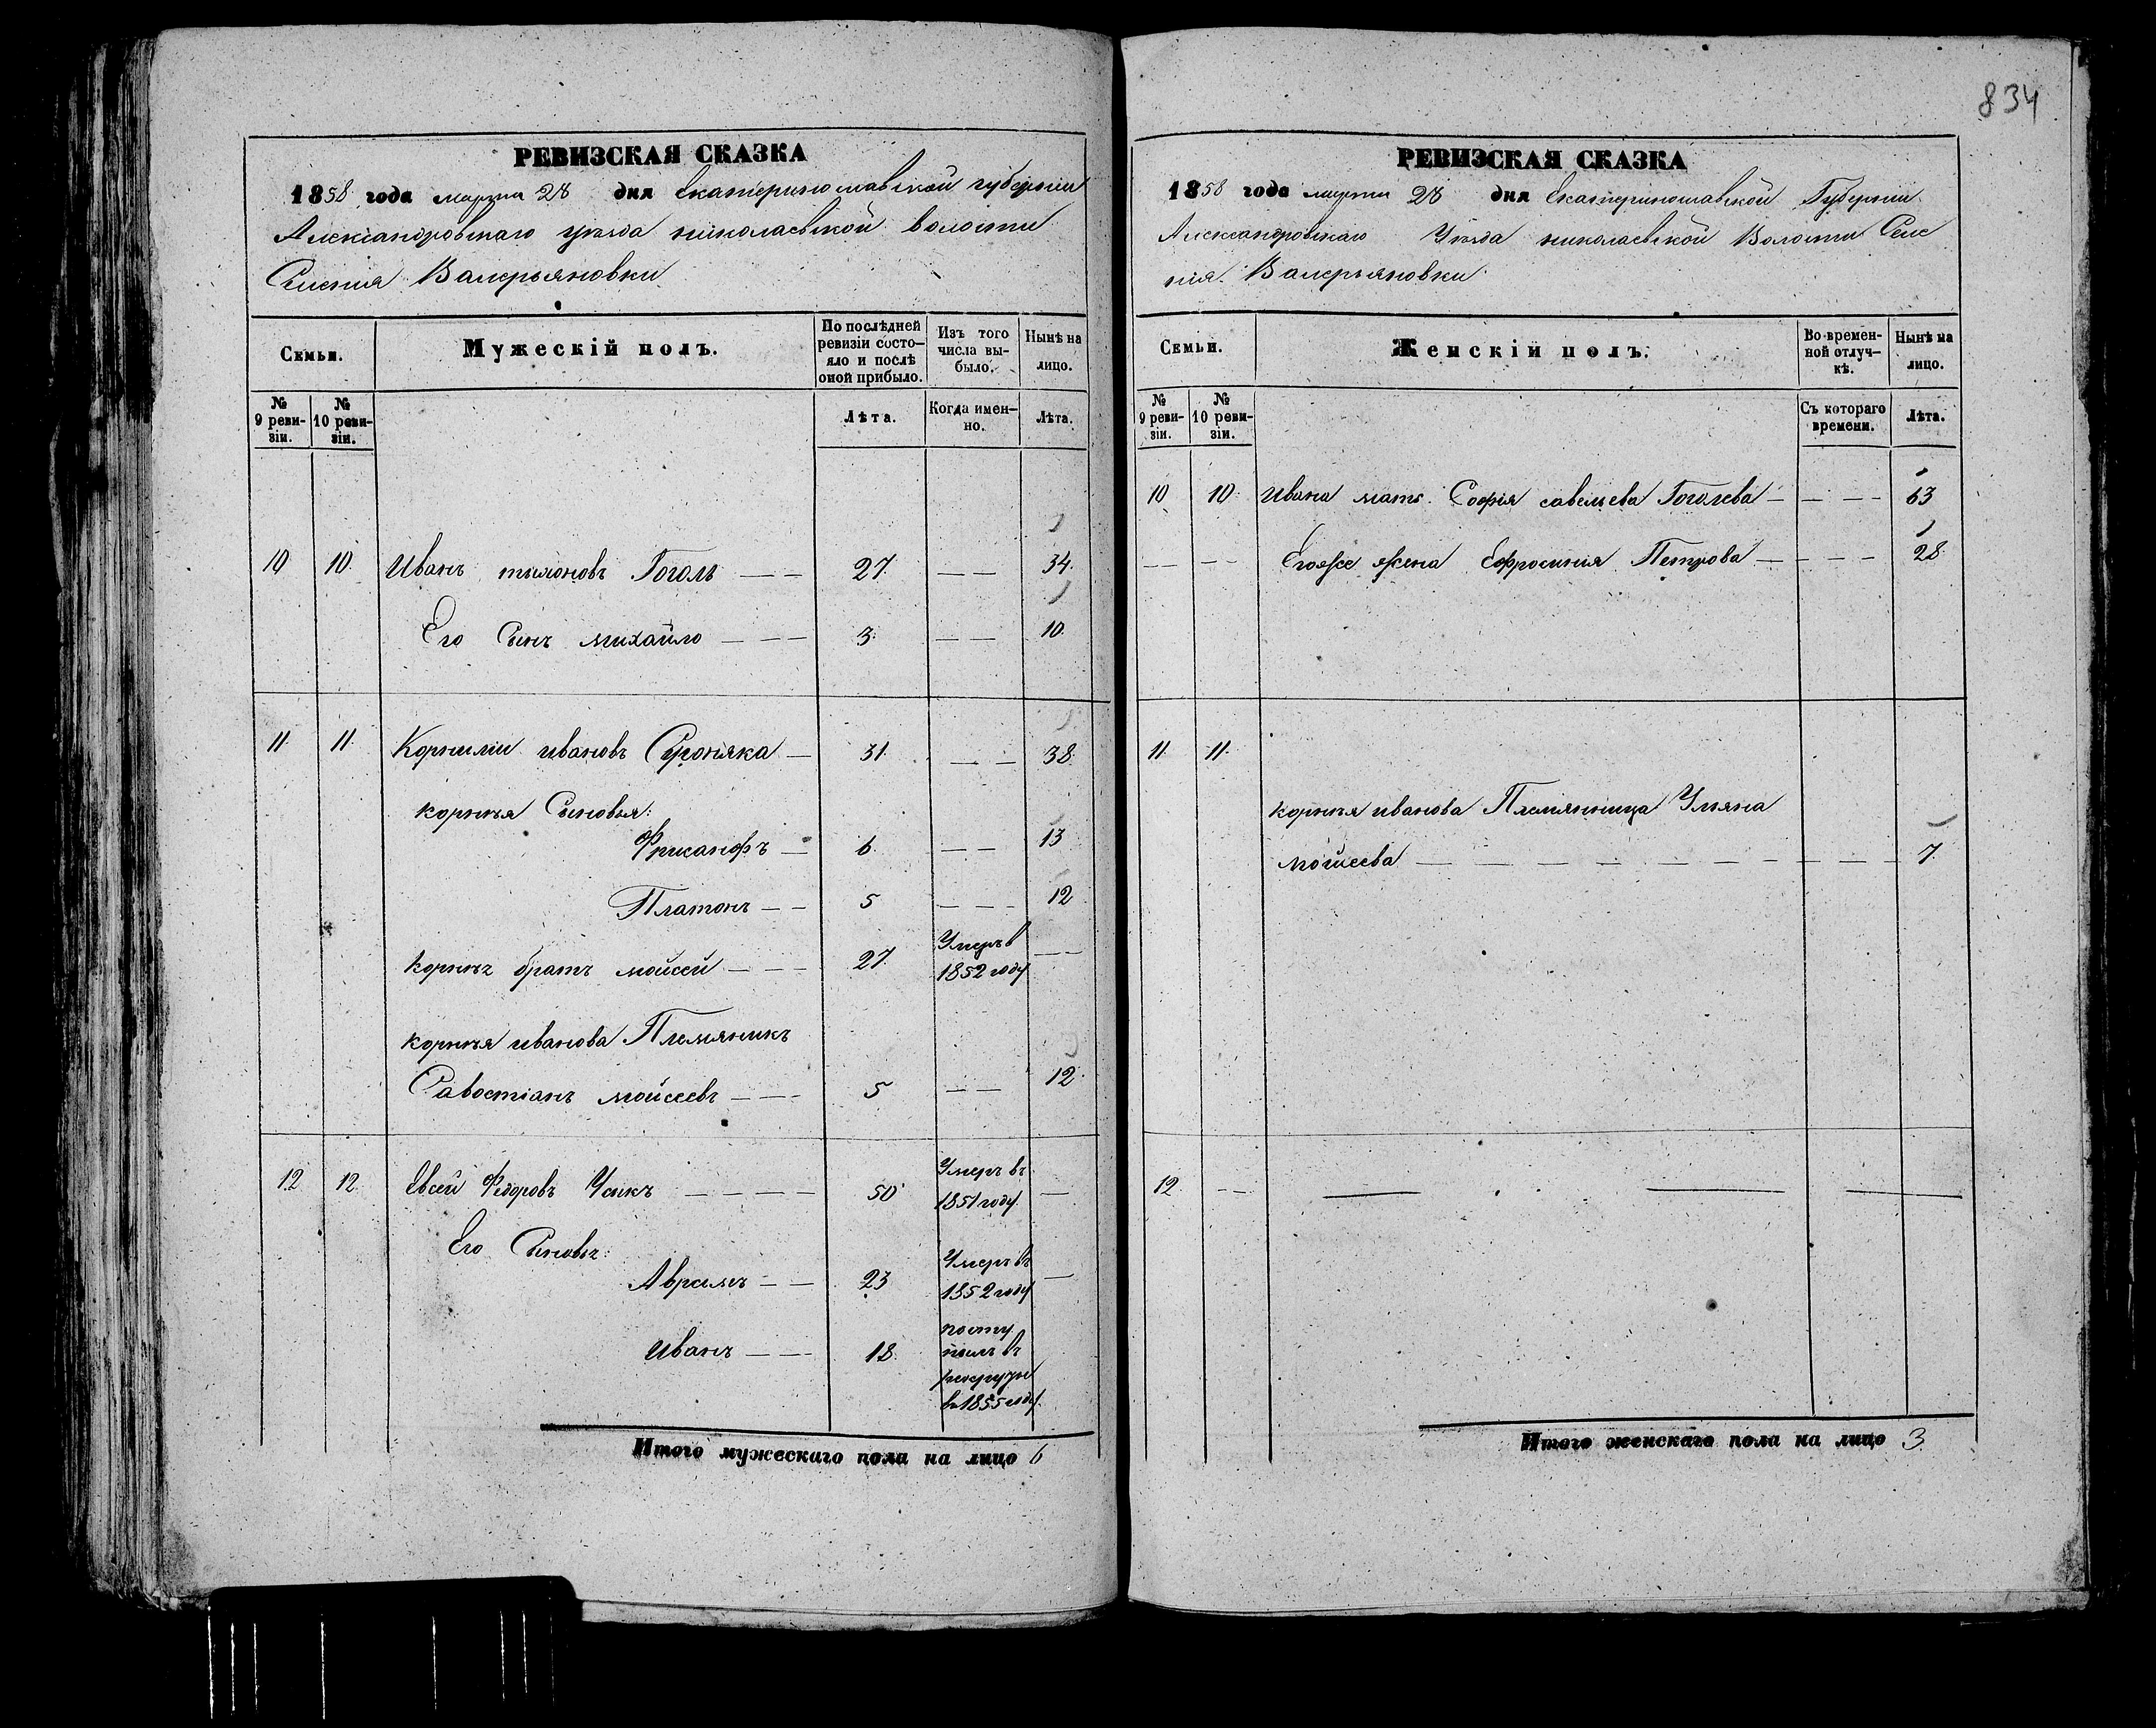 834
РЕВИЗСКАЯ СКАЗКА
1858 года марта 28 дня Екатеринославской губернии
Александровскаго уезда николаевской волости
Селения Валерьяновки
Семьи.
Мужескій полъ.
По послѣдней ревизіи состо-яло и послѣ оной прибыло.
Изъ того числа вы-было.
Нынѣ на лицо.
№ 9 реви-зіи.
№ 10 реви-зіи.
Лѣта.
Когда имен-но.
Лѣта.
10 10 Иванъ Гоголь 27 34
Его Сынъ михайло 3 10
11 11 Корнилій ивановъ 31 38
корнѣя Сыновья:
6 13
Платонъ 5 12
братъ мойсей 27 Умеръ в 1852 году
корнѣя иванова Племяникъ
Савостіанъ мойсеевъ 5 12
12 12 Евсей Федоровъ Усикъ 50 Умеръ въ 1851 году
Его Сыновъя:
Аврамъ 23 Умеръ въ 1852 году
Иванъ 18 посту пилъ въ рекруты в 1855 году
Итого мужескаго пола на лицо 6
РЕВИЗСКАЯ СКАЗКА
1858 года марта 28 дня Екатеринославской Губернии
Александровскаго Уезда николаевской Волости Селе
ния Валерьяновки
Семьи.
Женскій полъ.
Во времен-ной отлуч-кѣ.
Нынѣ на лицо.
№ 9 реви-зіи.
№ 10 реви-зіи.
Съ котораго времени.
Лѣта.
10 10 Ивана мать Софія савельева Гоголева 63
Егоже жена Ефросинія Петрова 28
11 11
корнѣя иванова Племянница Уляна
мойсеева 7
12
Итого женскаго пола на лицо 3